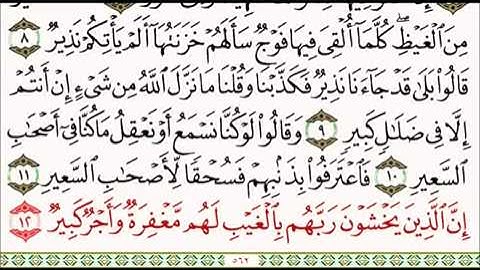 مِنَ ٱلْغَيْظِ ۖ كُلَّمَآ أُلْقِىَ فِيهَا فَوْجٌ سَأَلَهُمْ خَزَنَتُهَآ أَلَمْ يَأْتِكُمْ نَذِيرٌ ٨
قَالُوا۟ بَلَىٰ قَدْ جَآءَنَا نَذِيرٌ فَكَذَّبْنَا وَقُلْنَا مَا نَزَّلَ ٱللَّهُ مِن شَىْءٍ إِنْ أَنتُمْ
إِلَّا فِى ضَلَٰلٍ كَبِيرٍ ٩ وَقَالُوا۟ لَوْ كُنَّا نَسْمَعُ أَوْ نَعْقِلُ مَا كُنَّا فِىٓ أَصْحَٰبِ
ٱلسَّعِيرِ ١٠ فَٱعْتَرَفُوا۟ بِذَنۢبِهِمْ فَسُحْقًا لِّأَصْحَٰبِ ٱلسَّعِيرِ ١١
إِنَّ ٱلَّذِينَ يَخْشَوْنَ رَبَّهُم بِٱلْغَيْبِ لَهُم مَّغْفِرَةٌ وَأَجْرٌ كَبِيرٌ ١٢
٥٦٢